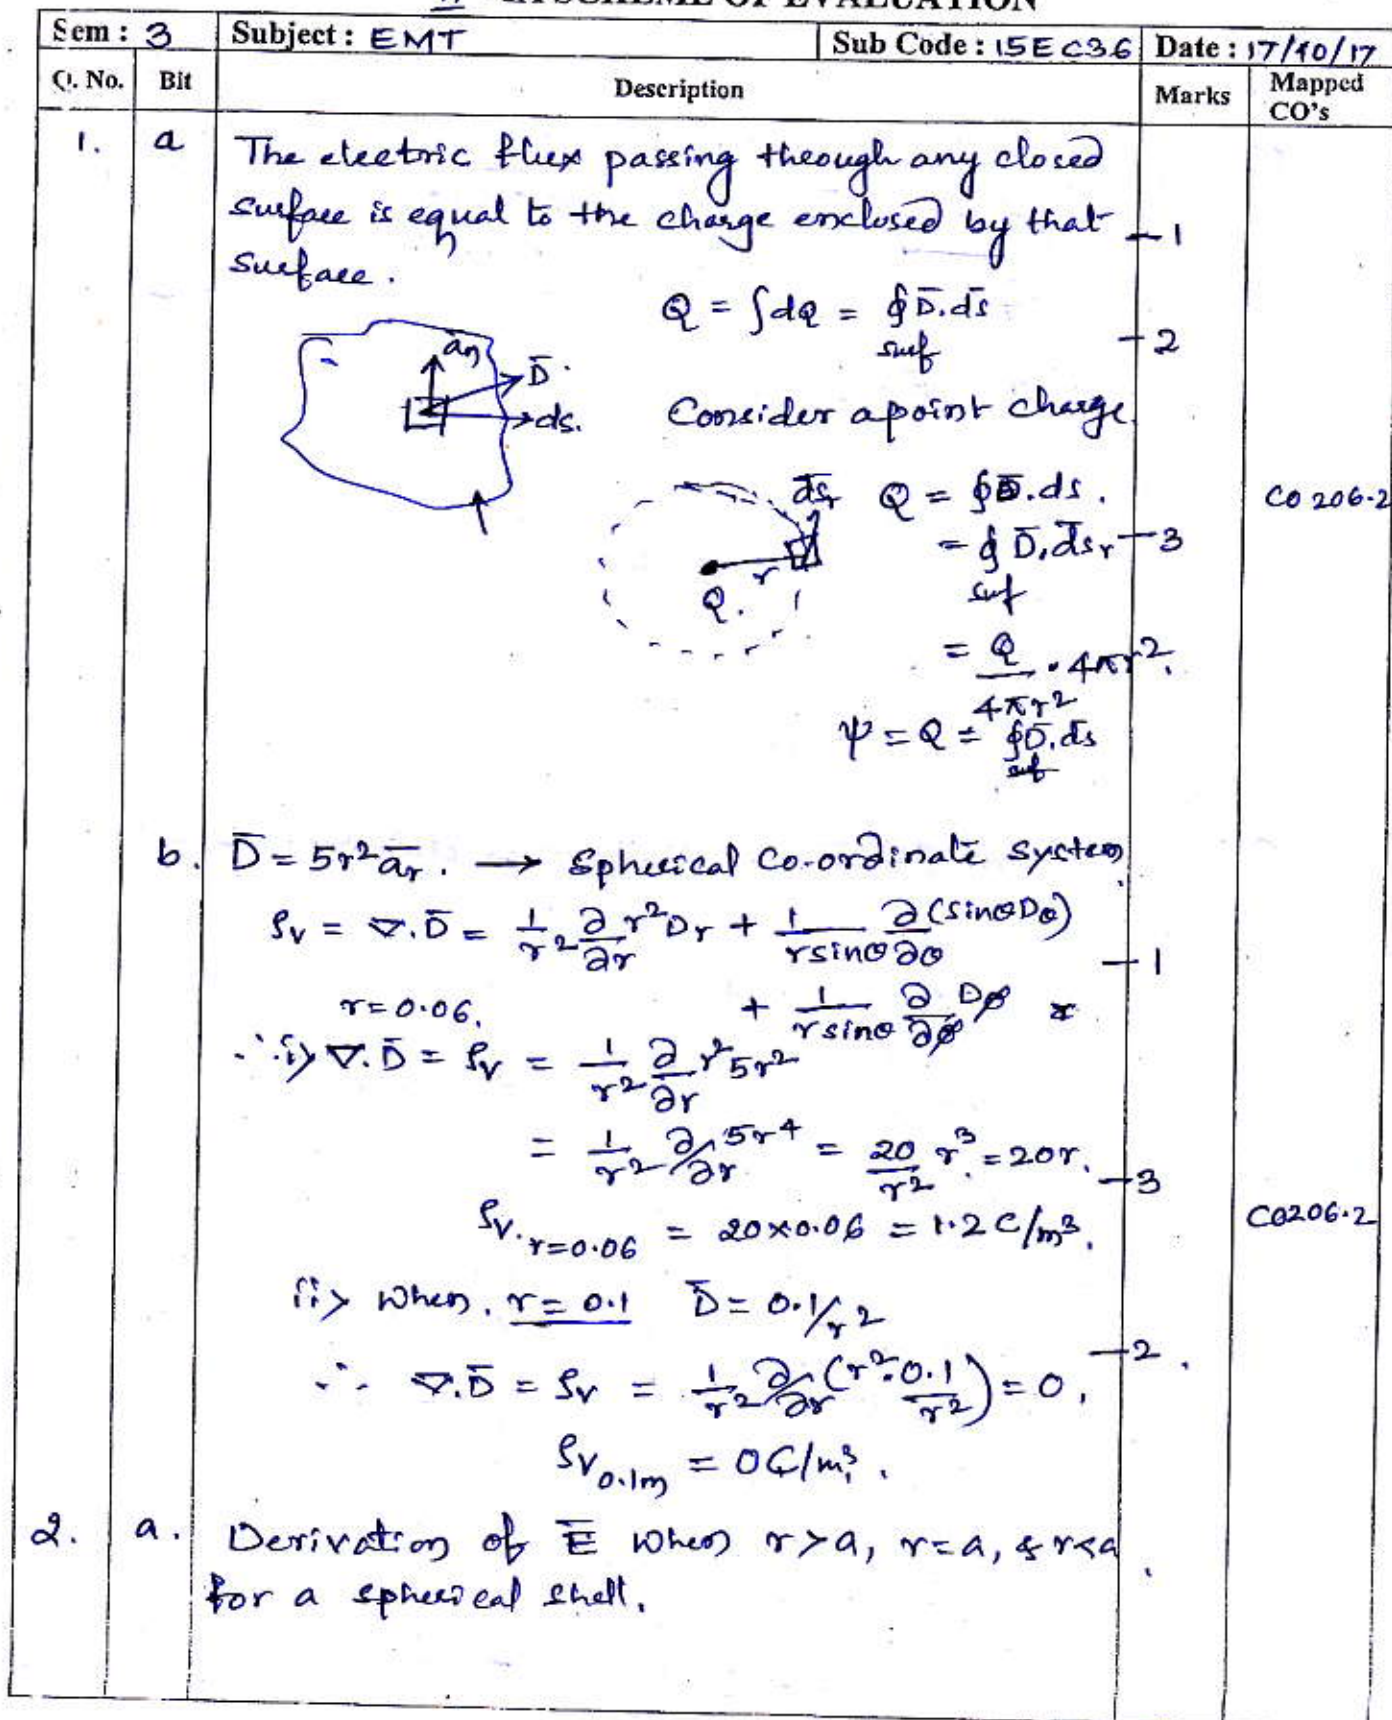 IA SCHEME OF EVALUATION
Sem : 3 Subject : EMT Sub Code : 15EC36 Date : 17/10/17
Q. No. Bit Description Marks Mapped CO's
1. a The electric flux passing through any closed
surface is equal to the charge enclosed by that 1
surface.
Q = ∫dQ = ∮D̄.ds̄
surf 2
ān
D̄.
ds. Consider a point charge
ds̄r Q = ∮D̄.ds. CO 206.2
= ∮ D̄.ds̄r 3
r surf
Q.
= Q/4πr² . 4πr².
ψ = Q = ∮D̄.ds̄
surf
b. D̄ = 5r² ār. → Spherical Co-ordinate system
ρv = ∇.D̄ = 1/r² ∂/∂r r²Dr + 1/rsinθ ∂(sinθDθ)/∂θ 1
r=0.06. + 1/rsinθ ∂/∂φ Dφ
∴ i) ∇.D̄ = ρv = 1/r² ∂/∂r r²5r²
= 1/r² ∂/∂r 5r⁴ = 20/r² r³ = 20r. 3
ρv.r=0.06 = 20×0.06 = 1.2 C/m³. CO206.2
ii) when. r = 0.1 D̄ = 0.1/r²
∴ ∇.D̄ = ρv = 1/r² ∂/∂r (r².0.1/r²) = 0, 2
ρv0.1m = 0C/m³.
2. a. Derivation of Ē when r>a, r=a, & r<a
for a spherical shell.